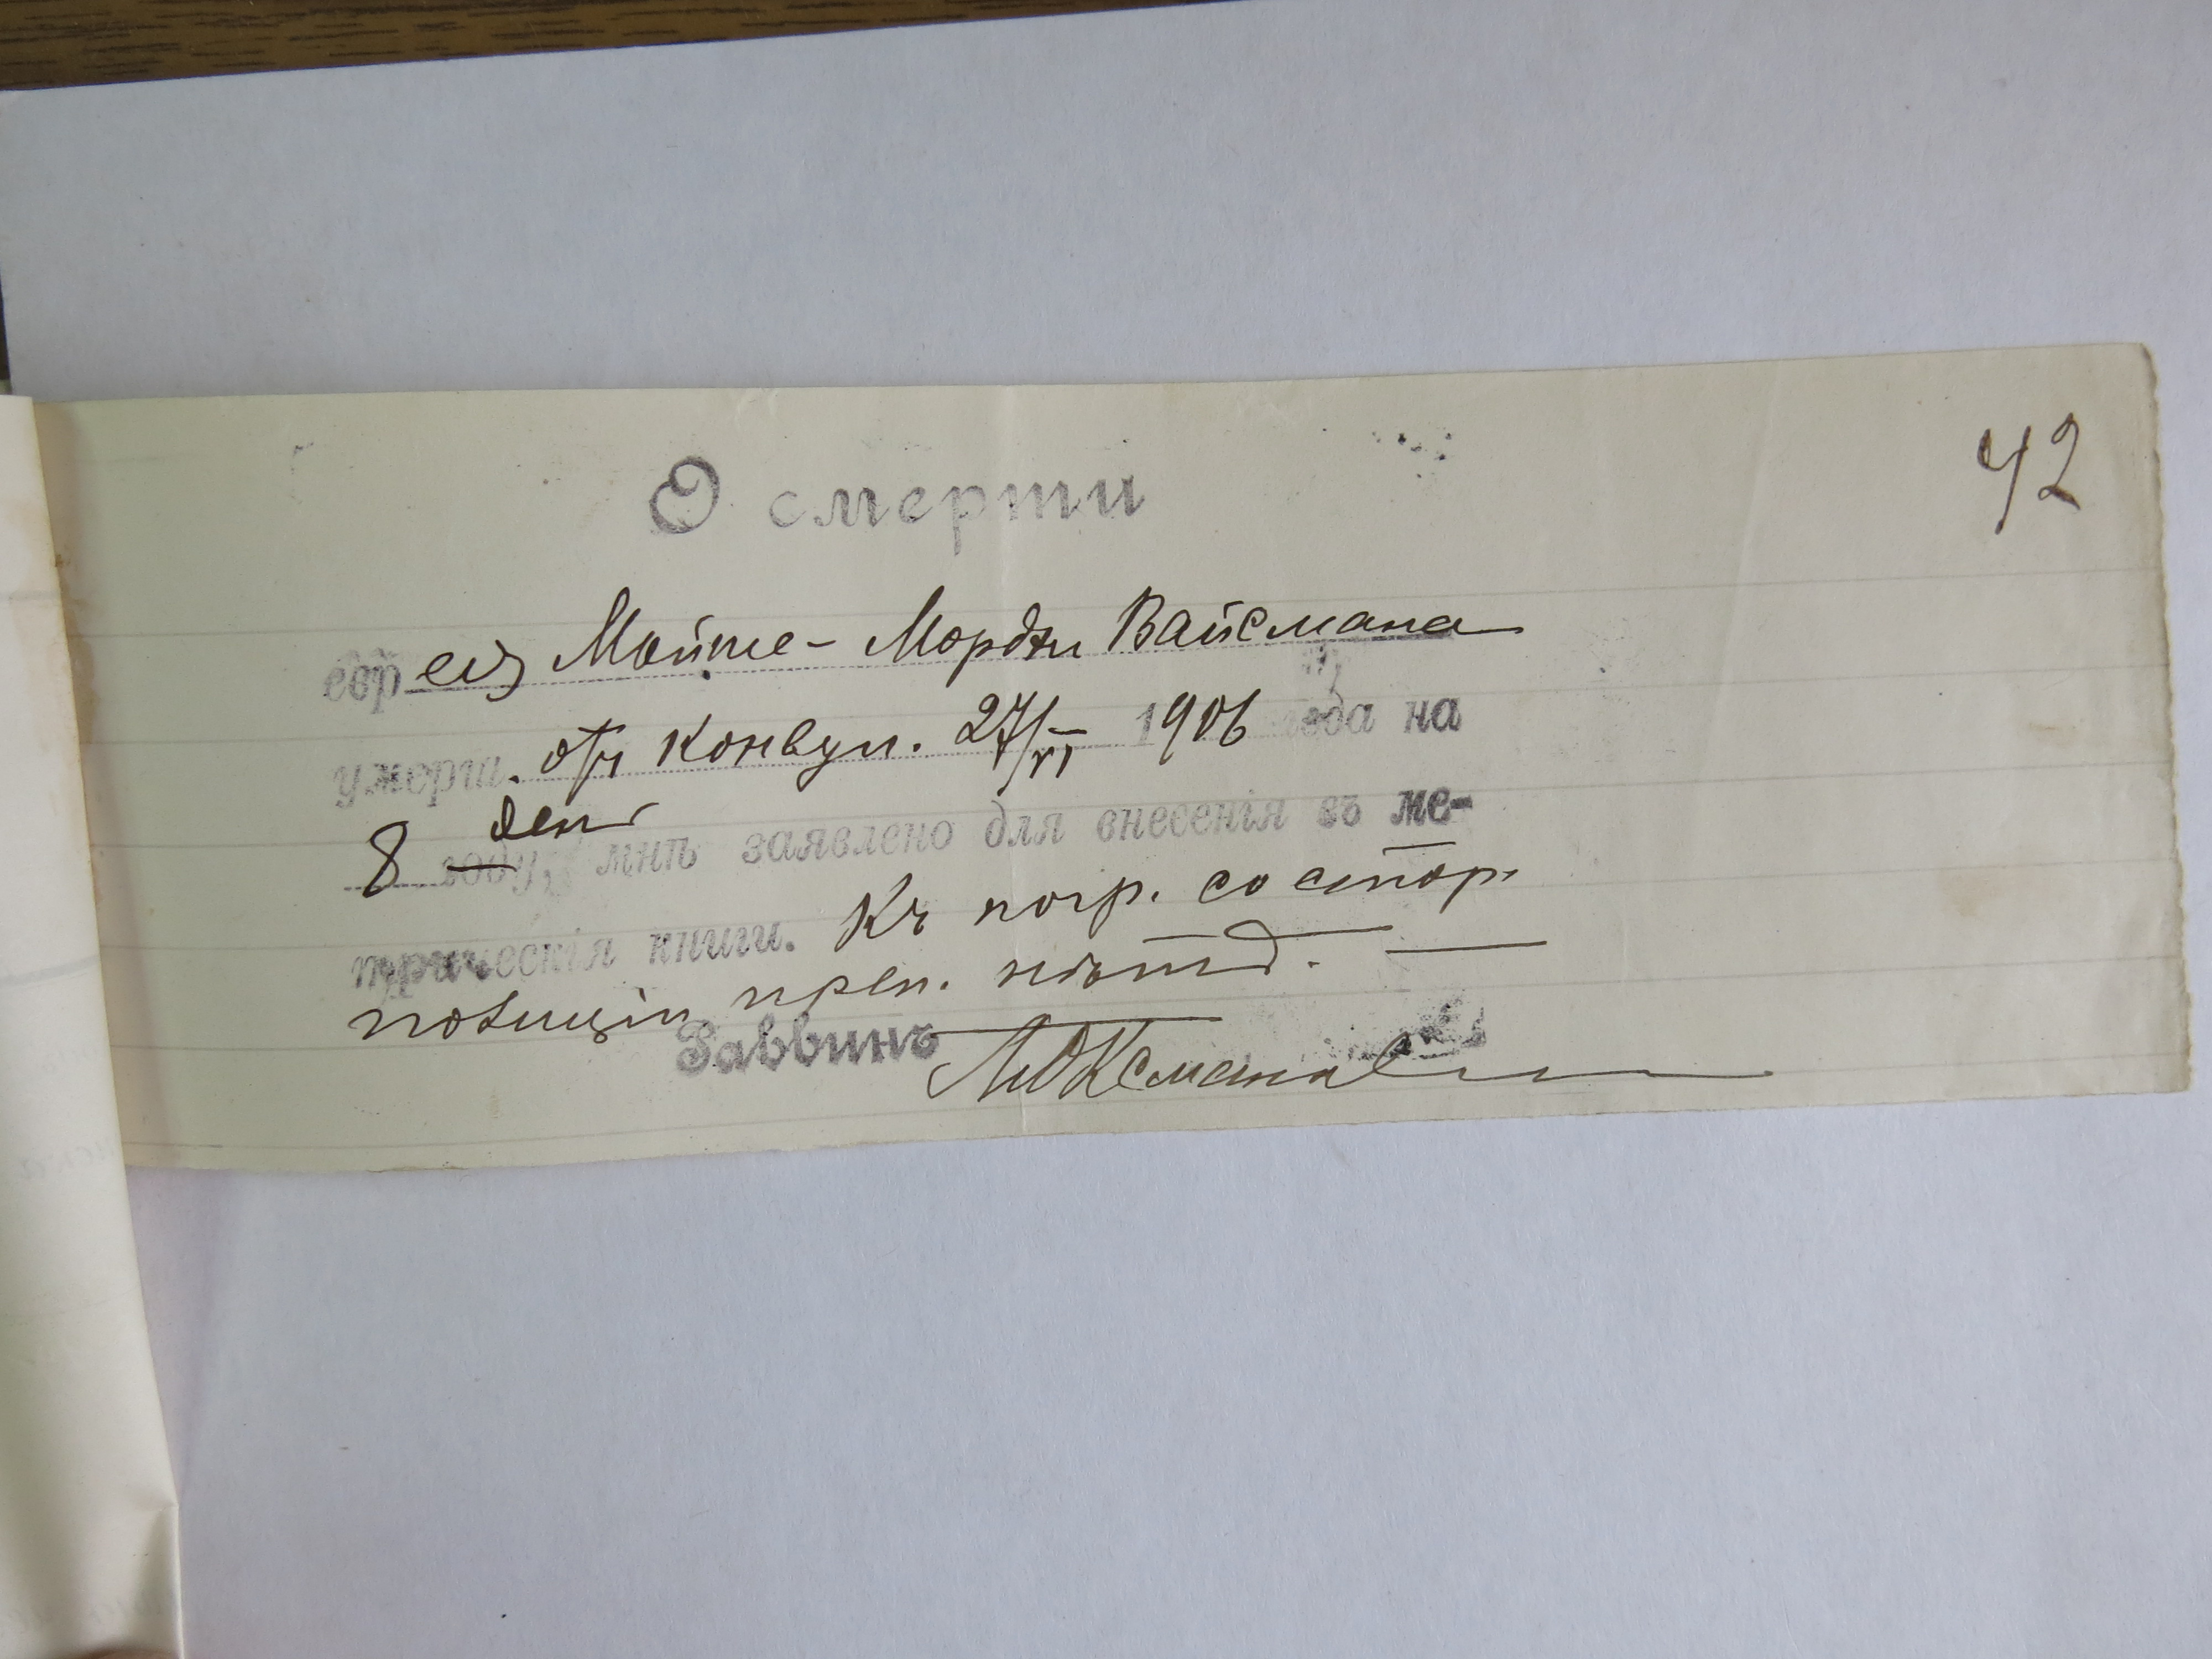 42
О смерти
еврея Мойше-Мордки Вайсмана
умерш. отъ конвул. 27/VI 1906 года на
8 день
году, мнѣ заявлено для внесенія въ ме-
трическія книги. Къ погр. со стор.
полиціи преп. нѣтъ.
Раввинъ